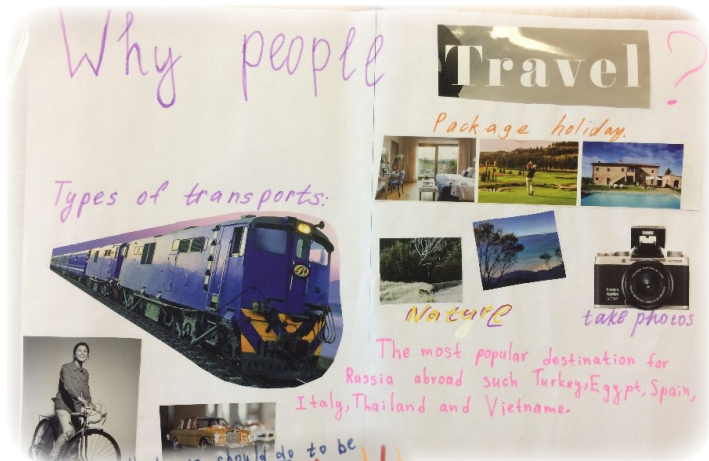 Why people Travel?
Package holiday.
Types of transports:
Nature
take photos
The most popular destination for
Russia abroad such Turkey, Egypt, Spain,
Italy, Thailand and Vietname.
should do to be